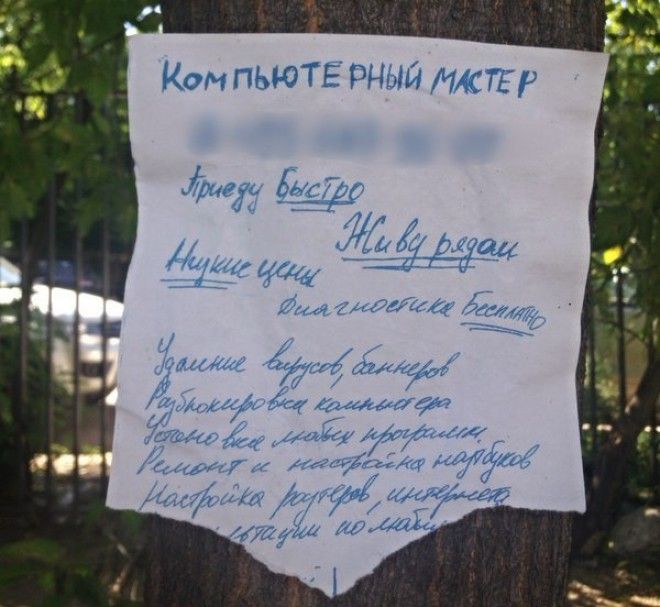 Компьютерный мастер
Приеду Быстро
Живу рядом
Низкие цены
Диагностика Бесплатно
Удаление вирусов, баннеров
Разблокировка компьютера
Установка любых программ
Ремонт и настройка ноутбуков
Настройка роутеров, интернета
по любы